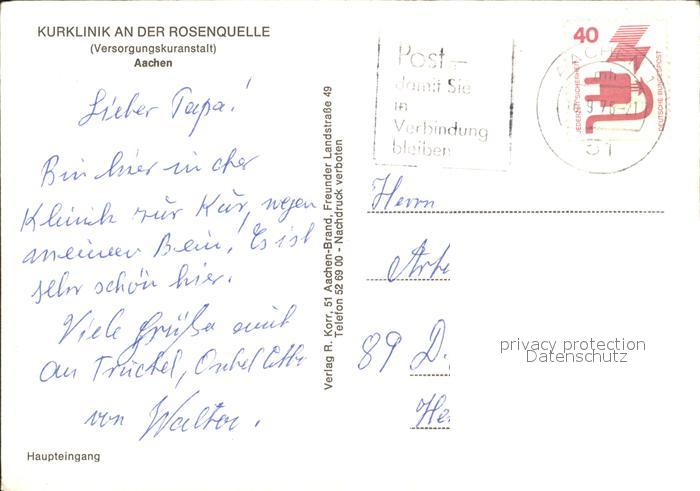 KURKLINIK AN DER ROSENQUELLE
(Versorgungskuranstalt)
Aachen
Lieber Papa!
Bin hier in der
Klinik zur Kur, wegen
meinem Bein. Es ist
sehr schön hier.
Viele Grüße auch
an Trüchel, Onkel Otto
von Walter.
Haupteingang
Verlag R. Korr, 51 Aachen-Brand, Freunder Landstraße 49
Telefon 52 69 00 - Nachdruck verboten
Post -
damit Sie
in
Verbindung
bleiben
40
JEDERZEIT SICHERHEIT
DEUTSCHE BUNDESPOST
AACHEN 1
51
Herrn
89 D.
privacy protection
Datenschutz